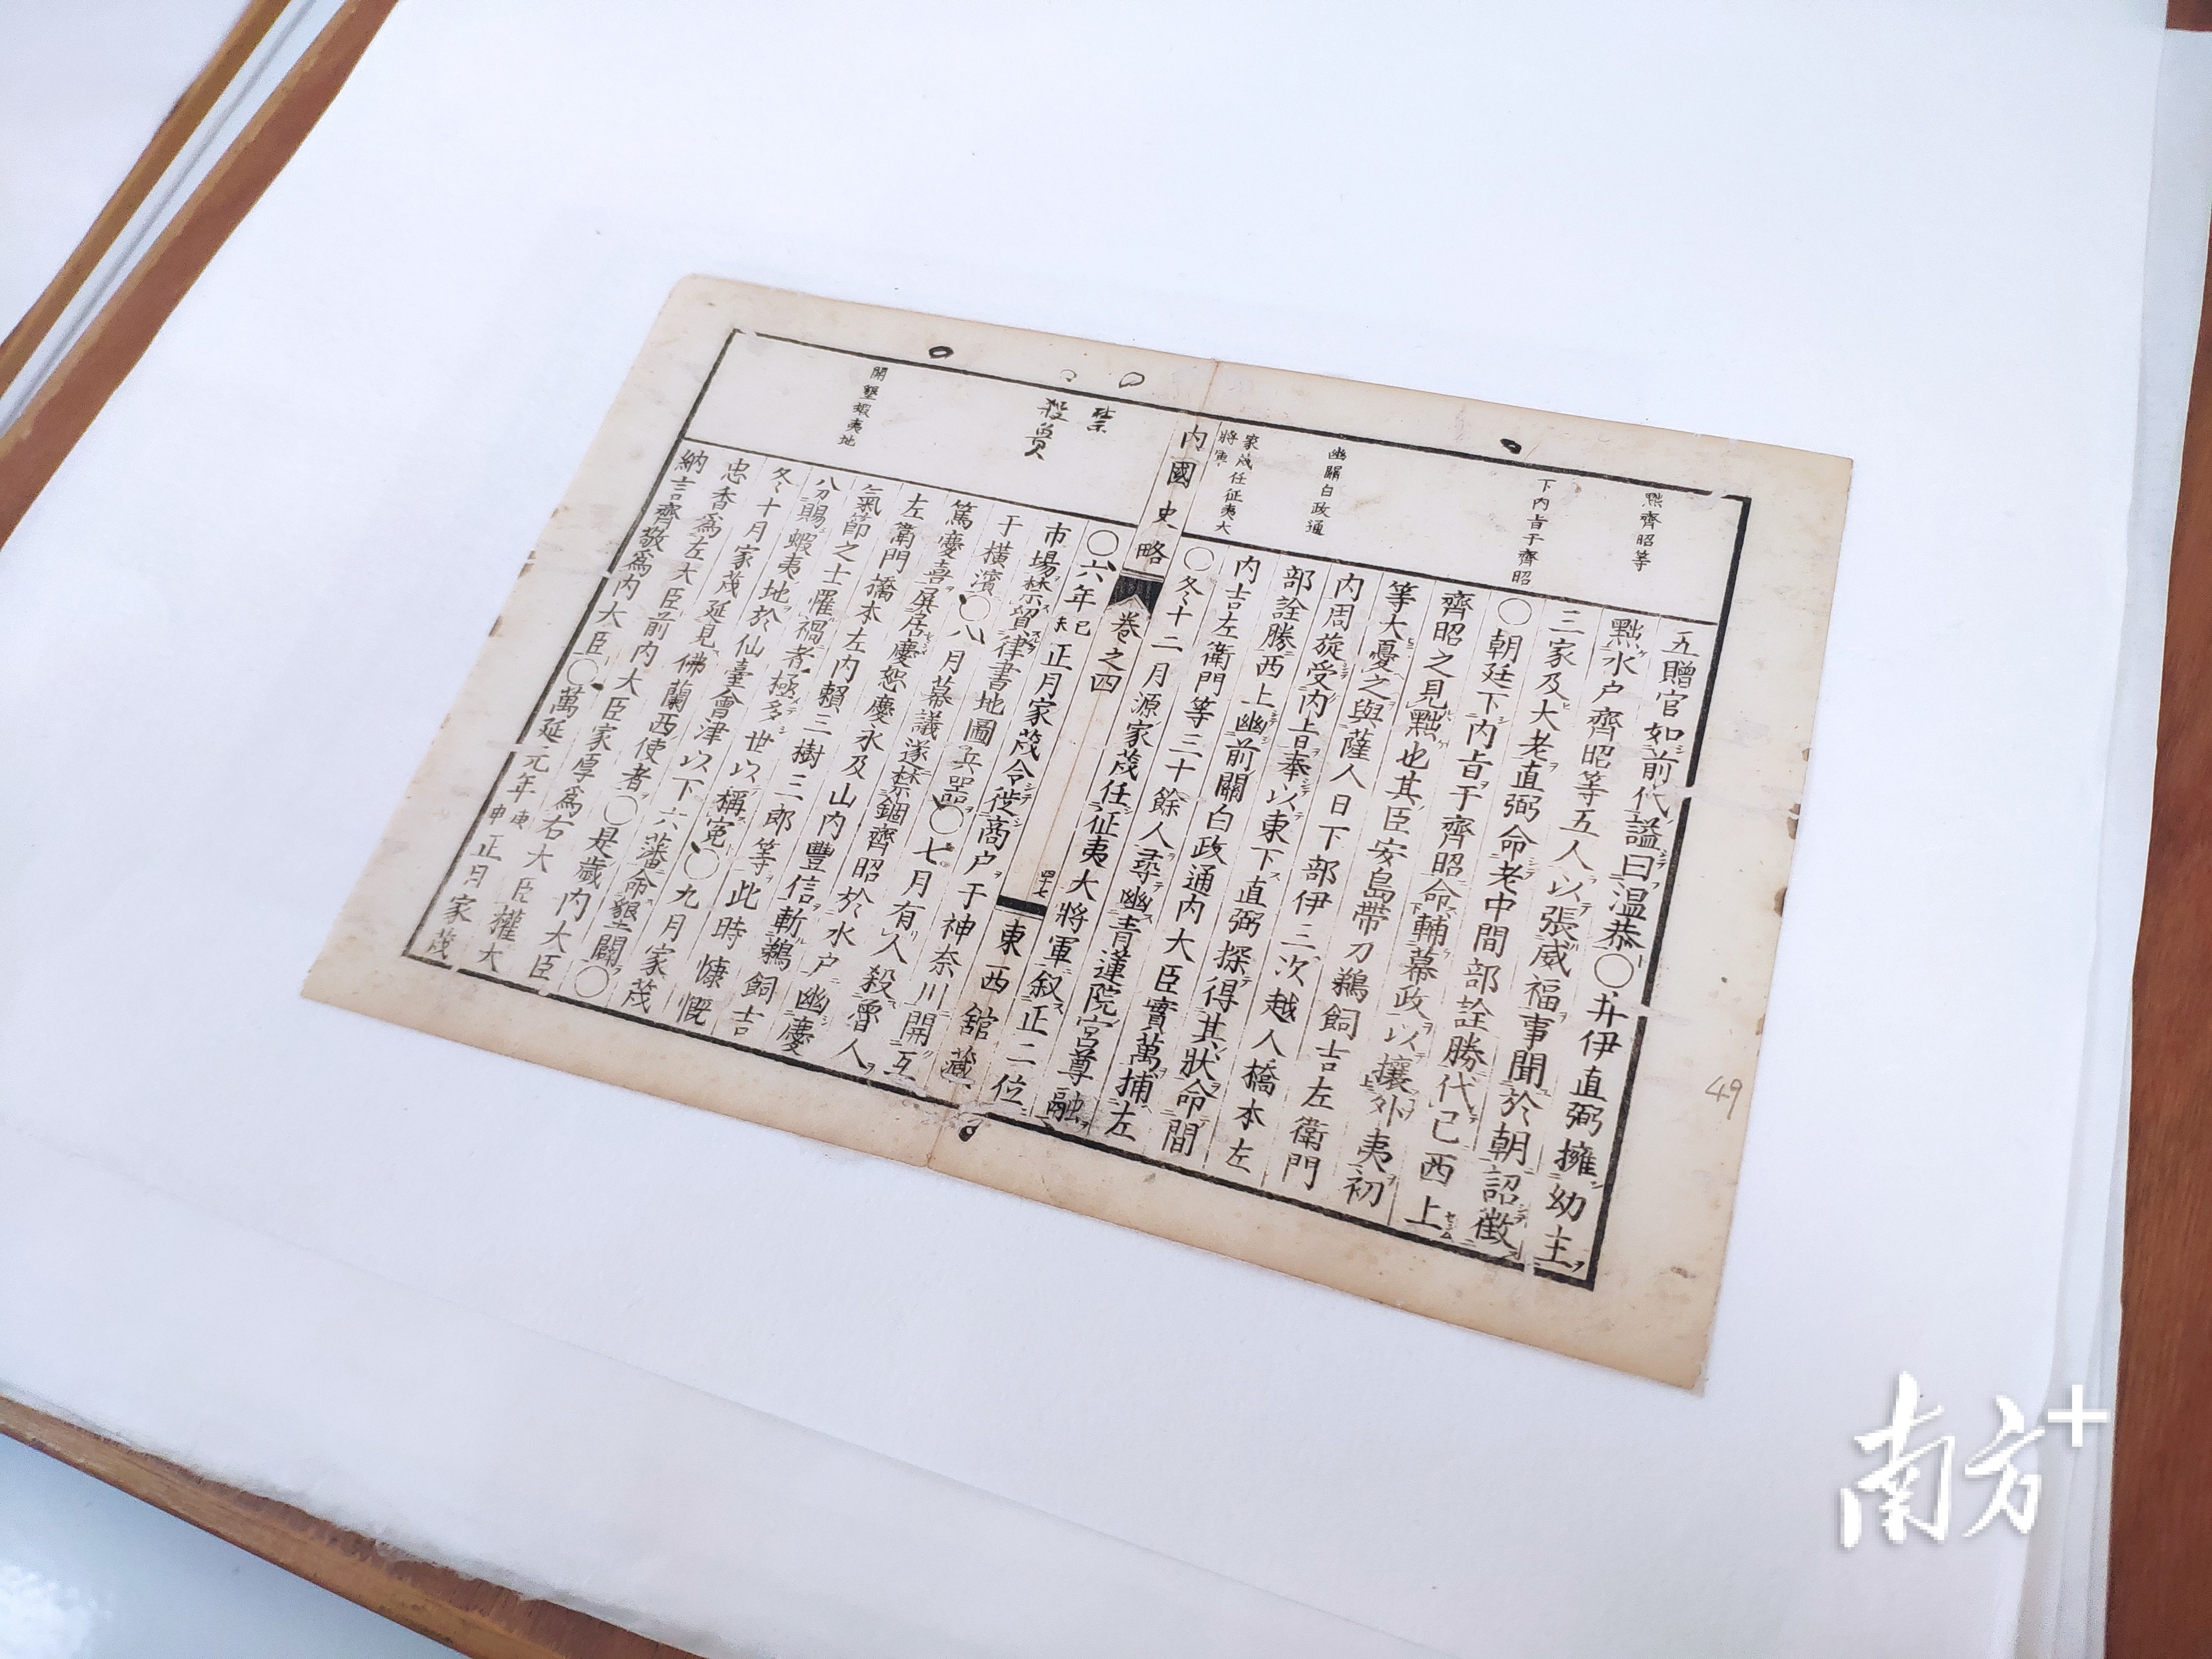 黜齊昭等
下内旨于齊昭
幽關白政通
家茂任征夷大
將軍
五贈官如前代謚曰温恭〇井伊直弼擁幼主
黜水戸齊昭等五人以張威福事聞於朝詔徴
三家及大老直弼命老中間部詮勝代已西上
〇朝廷下内旨于齊昭命輔幕政以攘外夷初
齊昭之見黜也其臣安島帶刀鵜飼吉左衛門
等大憂之與薩人日下部伊三次越人橋本左
内周旋受内旨奉以東下直弼探得其狀命間
部詮勝西上幽前關白政通内大臣實萬捕左
内吉左衛門等三十餘人尋幽青蓮院宮尊融
〇冬十二月源家茂任征夷大將軍叙正二位
内國史略
卷之四
四十七
東西舘藏
禁
殺魯人
開墾蝦夷地
〇六年己未正月家茂令徙商戸于神奈川開互
市場禁貿律書地圖兵器〇七月有人殺魯人
于横濱〇八月幕議遂禁錮齊昭於水戸幽慶
篤慶喜屏居慶恕慶永及山内豐信斬鵜飼吉
左衛門橋本左内賴三樹三郎等此時慷慨
氣節之士罹禍者極多世以稱寃〇九月家茂
分賜蝦夷地於仙臺會津以下六藩命墾闢〇
冬十月家茂延見佛蘭西使者〇是歳内大臣
忠香爲左大臣前内大臣家厚爲右大臣權大
納言齊敬爲内大臣〇萬延元年庚申正月家茂
49
南方+